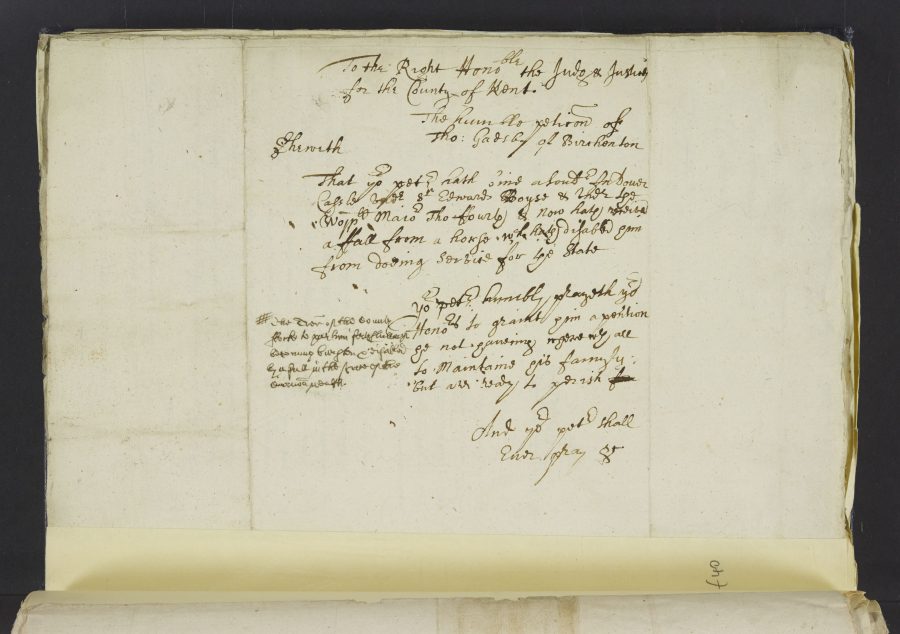 To the Right Honoble the Judg & Justices
for the County of Kent.
The humble peticon of
Tho: Gadsby of Birchenton
Sheweth
That yor petr hath bine aboute In Dover
Castle under Sr Edward Boyse & Under the
Worpll Maior Tho: & now hath received
a ffall from a horse wch hath disabled him
from doeing service for the State
yor petr humbly prayeth yor
Honors to graint him a pention
he not haveing wherewthall
to Maintaine his familly
but are ready to perish
And yor petr shall
Ever pray &c
the Trer of the County
stocke to pay him
&
by a fall in the service of the
Common wealth.
£40